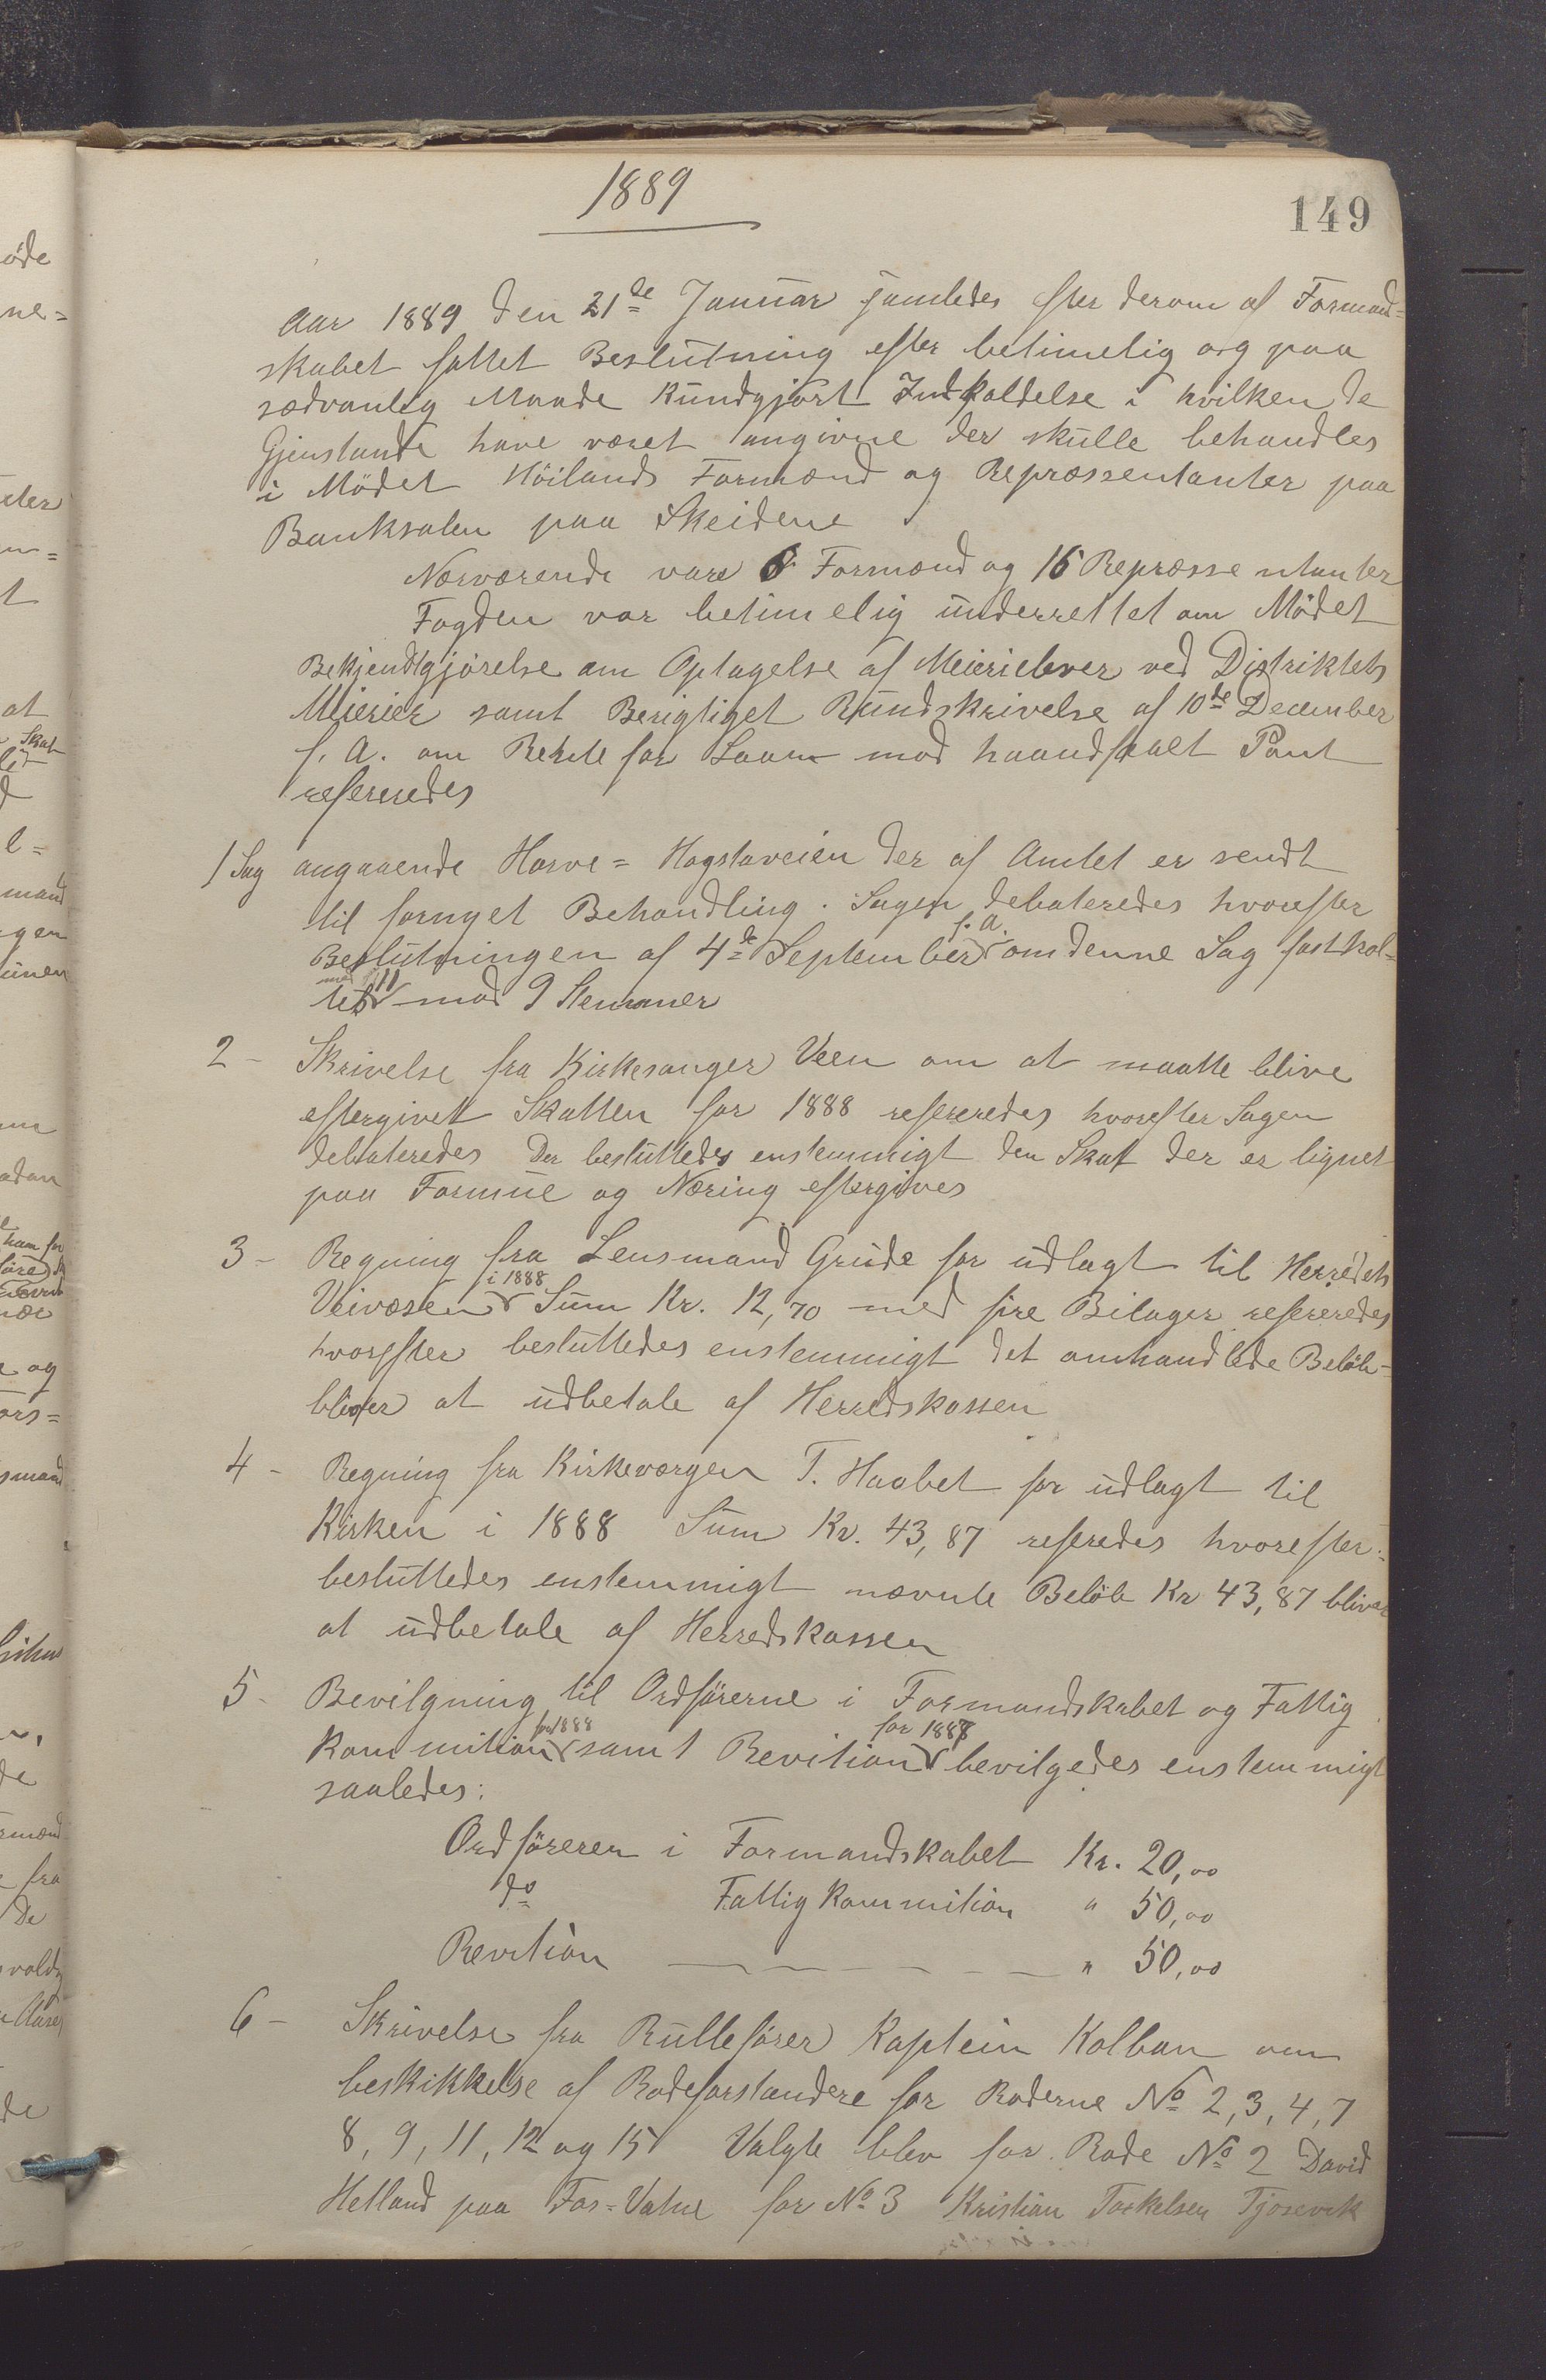 1889
149
Aar 1889 den 21de Januar samledes efter derom af Formand=
skabet fattet Beslutning efter betimelig og paa
sædvanlig Maade Kundgjort Indkaldelse i hvilken de
Gjenstande have været angivne der skulle behandles
i Mödet Höilands Formænd og Repræssentanter paa
Banksalen paa Skeidene
Nærværende vare 6 Formænd og 16 Repræssentanter
Fogden var betimelig underrettet om Mödet
Bekjendtgjörelse om Optagelse af Meierielever ved Distriktets
Meierier samt Berigtiget Rundskrivelse af 10de December
f. A. om Rente for Laan mod haandfaaet Pant
refereredes
1 Sag angaaende Harve= Hogstaveien der af Amtet er sendt
til fornyet Behandling. Sagen debateredes hvorefter
Beslutningen af 4de September f. A. om denne Sag fasthol=
tes med 11 mod 9 Stemmer
2 - Skrivelse fra Kirkesanger Veen om at maatte blive
eftergivet Skatten for 1888 refereredes hvorefter Sagen
debateredes Der besluttedes enstemmigt den Skat der er lignet
paa Formue og Næring eftergives
3 - Regning fra Lensmand Grude for udlagt til Herredets
Veivæsen i 1888 Sum Kr. 12,70 med fire Bilager refereredes
hvorefter besluttedes enstemmigt det omhandlede Belöb
bliver at udbetale af Herredskassen
4 - Regning fra Kirkeværgen T. Haabet for udlagt til
Kirken i 1888 Sum Kr. 43,87 referedes hvorefter
besluttedes enstemmigt nævnte Belöb Kr 43,87 bliver
at udbetale af Herredskassen
5 - Bevilgning til Ordförerne i Formandskabet og Fattig
Kommition for 1888 samt Revition for 1887 bevilgedes enstemmigt
saaledes:
Ordföreren i Formandskabet Kr. 20,00
do Fattig Kommition " 50,00
Revition " 50,00
6 - Skrivelse fra Rulleförer Kaptein Kolban om
beskikkelse af Rodeforstandere for Roderne No 2, 3, 4, 7
8, 9, 11, 12 og 15 Valgte blev for Rode No 2 David
Hetland paa Fos=Vatne for No 3 Kristian Torkelsen Tjosevik